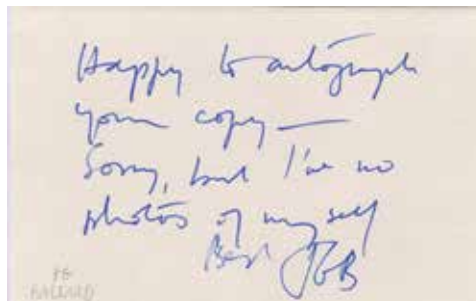 Happy to autograph
your copy —
Sorry, but I've no
photos of myself
Best JGB
JG
BALLARD